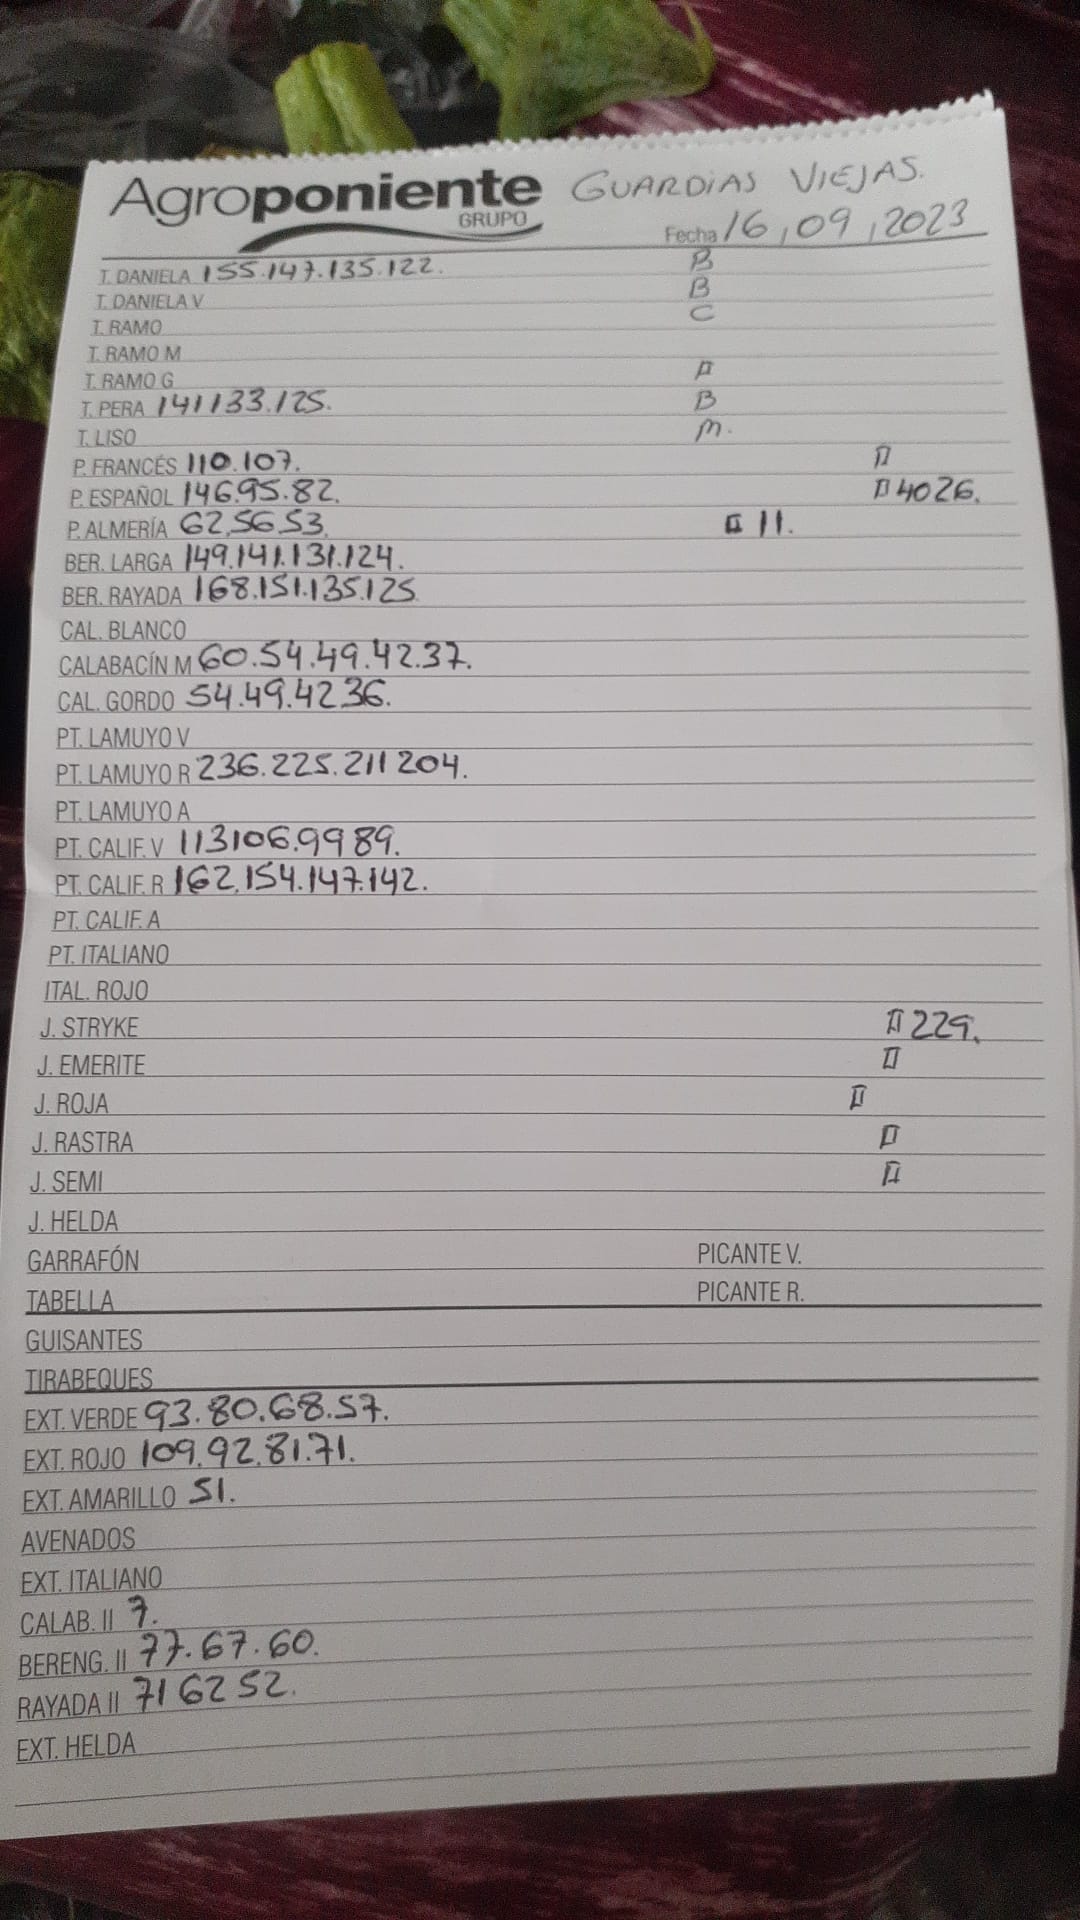 Agroponiente GUARDIAS VIEJAS.
GRUPO
Fecha 16,09,2023
T. DANIELA 155.147.135.122. B
T. DANIELA V B
T. RAMO C
T. RAMO M
T. RAMO G
T. PERA 141133.125. B
T. LISO M.
P. FRANCÉS 110.107.
P. ESPAÑOL 146.95.82. 4026.
P. ALMERÍA 62.56.53. 11.
BER. LARGA 149.141.131.124.
BER. RAYADA 168.151.135.125
CAL. BLANCO
CALABACÍN M 60.54.49.42.37.
CAL. GORDO 54.49.4236.
PT. LAMUYO V
PT. LAMUYO R 236.225.211 204.
PT. LAMUYO A
PT. CALIF. V 113106.9989.
PT. CALIF. R 162.154.147.142.
PT. CALIF. A
PT. ITALIANO
ITAL. ROJO
J. STRYKE 229.
J. EMERITE
J. ROJA
J. RASTRA
J. SEMI
J. HELDA
GARRAFÓN PICANTE V.
TABELLA PICANTE R.
GUISANTES
TIRABEQUES
EXT. VERDE 93.80.68.57.
EXT. ROJO 109.92.81.71.
EXT. AMARILLO 51.
AVENADOS
EXT. ITALIANO
CALAB. II 7.
BERENG. II 77.67.60.
RAYADA II 71 62 52.
EXT. HELDA